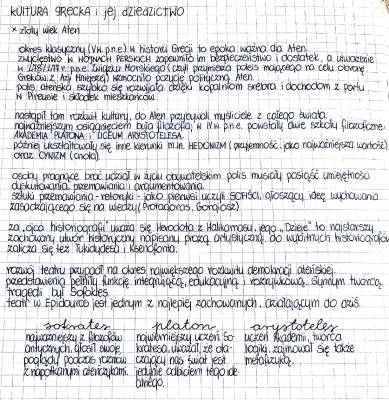 KULTURA GRECKA i jej DZIEDZICTWO
* złoty wiek Aten
okres klasyczny (V w. p.n.e.) w historii Grecji to epoka ważna dla Aten.
zwycięstwo w WOJNACH PERSKICH zapewniło im bezpieczeństwo i dostatek, a utworzenie
w 478/477 r. p.n.e. Związku Morskiego (czyli przymierza poleis mającego na celu obronę
Greków z Azji Mniejszej) wzmocniło pozycję polityczną Aten.
polis ateńska szybko się rozwijała dzięki kopalniom srebra i dochodom z portu
w Pireusie i składek mieszkańców.
nastąpił tam rozkwit kultury, do Aten przybywali myśliciele z całego świata.
najważniejszym osiągnięciem była filozofia, w IV w. p.n.e. powstały dwie szkoły filozoficzne:
AKADEMIA PLATONA i LICEUM ARYSTOTELESA.
później ukształtowały się inne kierunki m.in. HEDONIZM (przyjemność jako najważniejsza wartość)
oraz CYNIZM (cnota).
osoby pragnące brać udział w życiu obywatelskim polis musiały posiąść umiejętność
dyskutowania, przemawiania i argumentowania.
sztuki przemawiania - retoryki - jako pierwsi uczyli SOFIŚCI, głoszący ideę wychowania
zasadzającego się na wiedzy (Protagoras, Gorgiasz).
za „ojca historiografii" uważa się Herodota z Halikarnasu, jego „Dzieje" to najstarszy
zachowany utwór historyczny napisany prozą artystyczną. do wybitnych historiografów
zalicza się też Tukidydesa i Ksenofonta.
rozwój teatru przypadł na okres największego rozkwitu demokracji ateńskiej.
przedstawienia pełniły funkcję integrującą, edukacyjną i rozrywkową. słynnym twórcą
tragedii był Sofokles.
teatr w Epidauros jest jednym z najlepiej zachowanych, działającym do dziś.
sokrates
najważniejszy z filozofów
antycznych, głosił swoje
poglądy podczas rozmów
z napotkanymi ateńczykami.
platon
najwybitniejszy uczeń So-
kratesa, uważał, że ota-
czający nas świat jest
jedynie odbiciem tego ide-
alnego.
arystoteles
uczeń Akademii, twórca
logiki, zajmował się także
metafizyką.